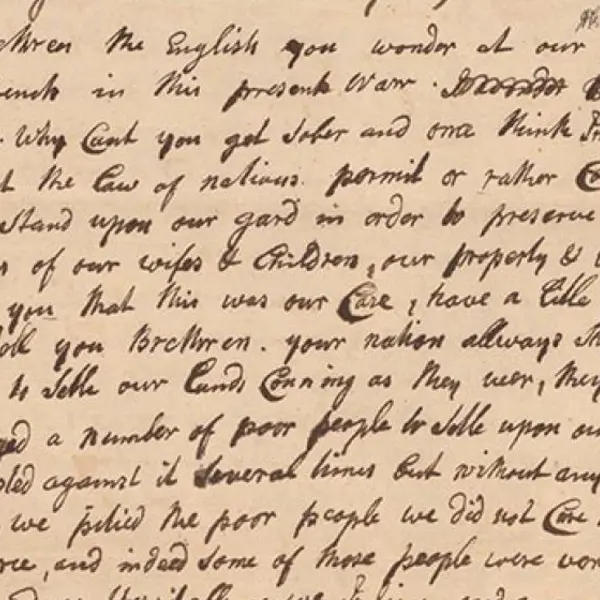 the English you wonder at our
in this present Warr.
Why Cant you get sober and once think
the Law of nations permit or rather
stand upon our gard in order to preserve
of our wifes & Children, our property &
you that this was our Case, have a little
you Brethren. your nation allways
to setle our Lands Conning as they wer, they
a number of poor people to setle upon
against it several times but without any
we pitied the poor people we did not Care
and indeed some of those people were